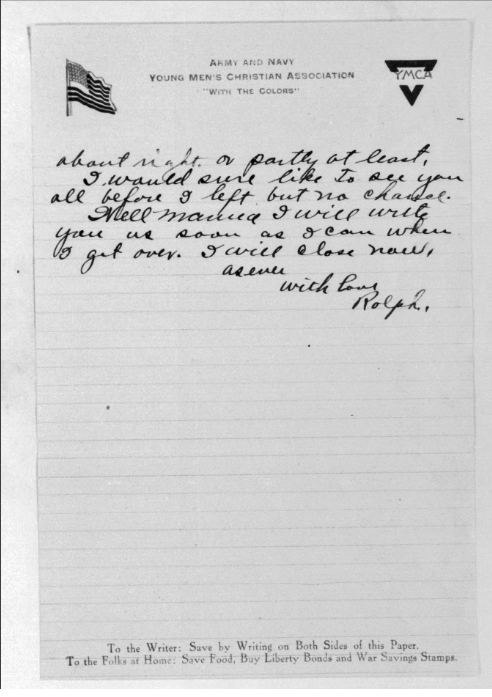 ARMY AND NAVY
YOUNG MEN'S CHRISTIAN ASSOCIATION
"WITH THE COLORS"
YMCA
about right. or partly at least.
I would sure like to see you
all before I left but no chance.
Well mama I will write
you as soon as I can when
I get over. I will close now,
as ever
with love
Rolph.
To the Writer: Save by Writing on Both Sides of this Paper.
To the Folks at Home: Save Food, Buy Liberty Bonds and War Savings Stamps.